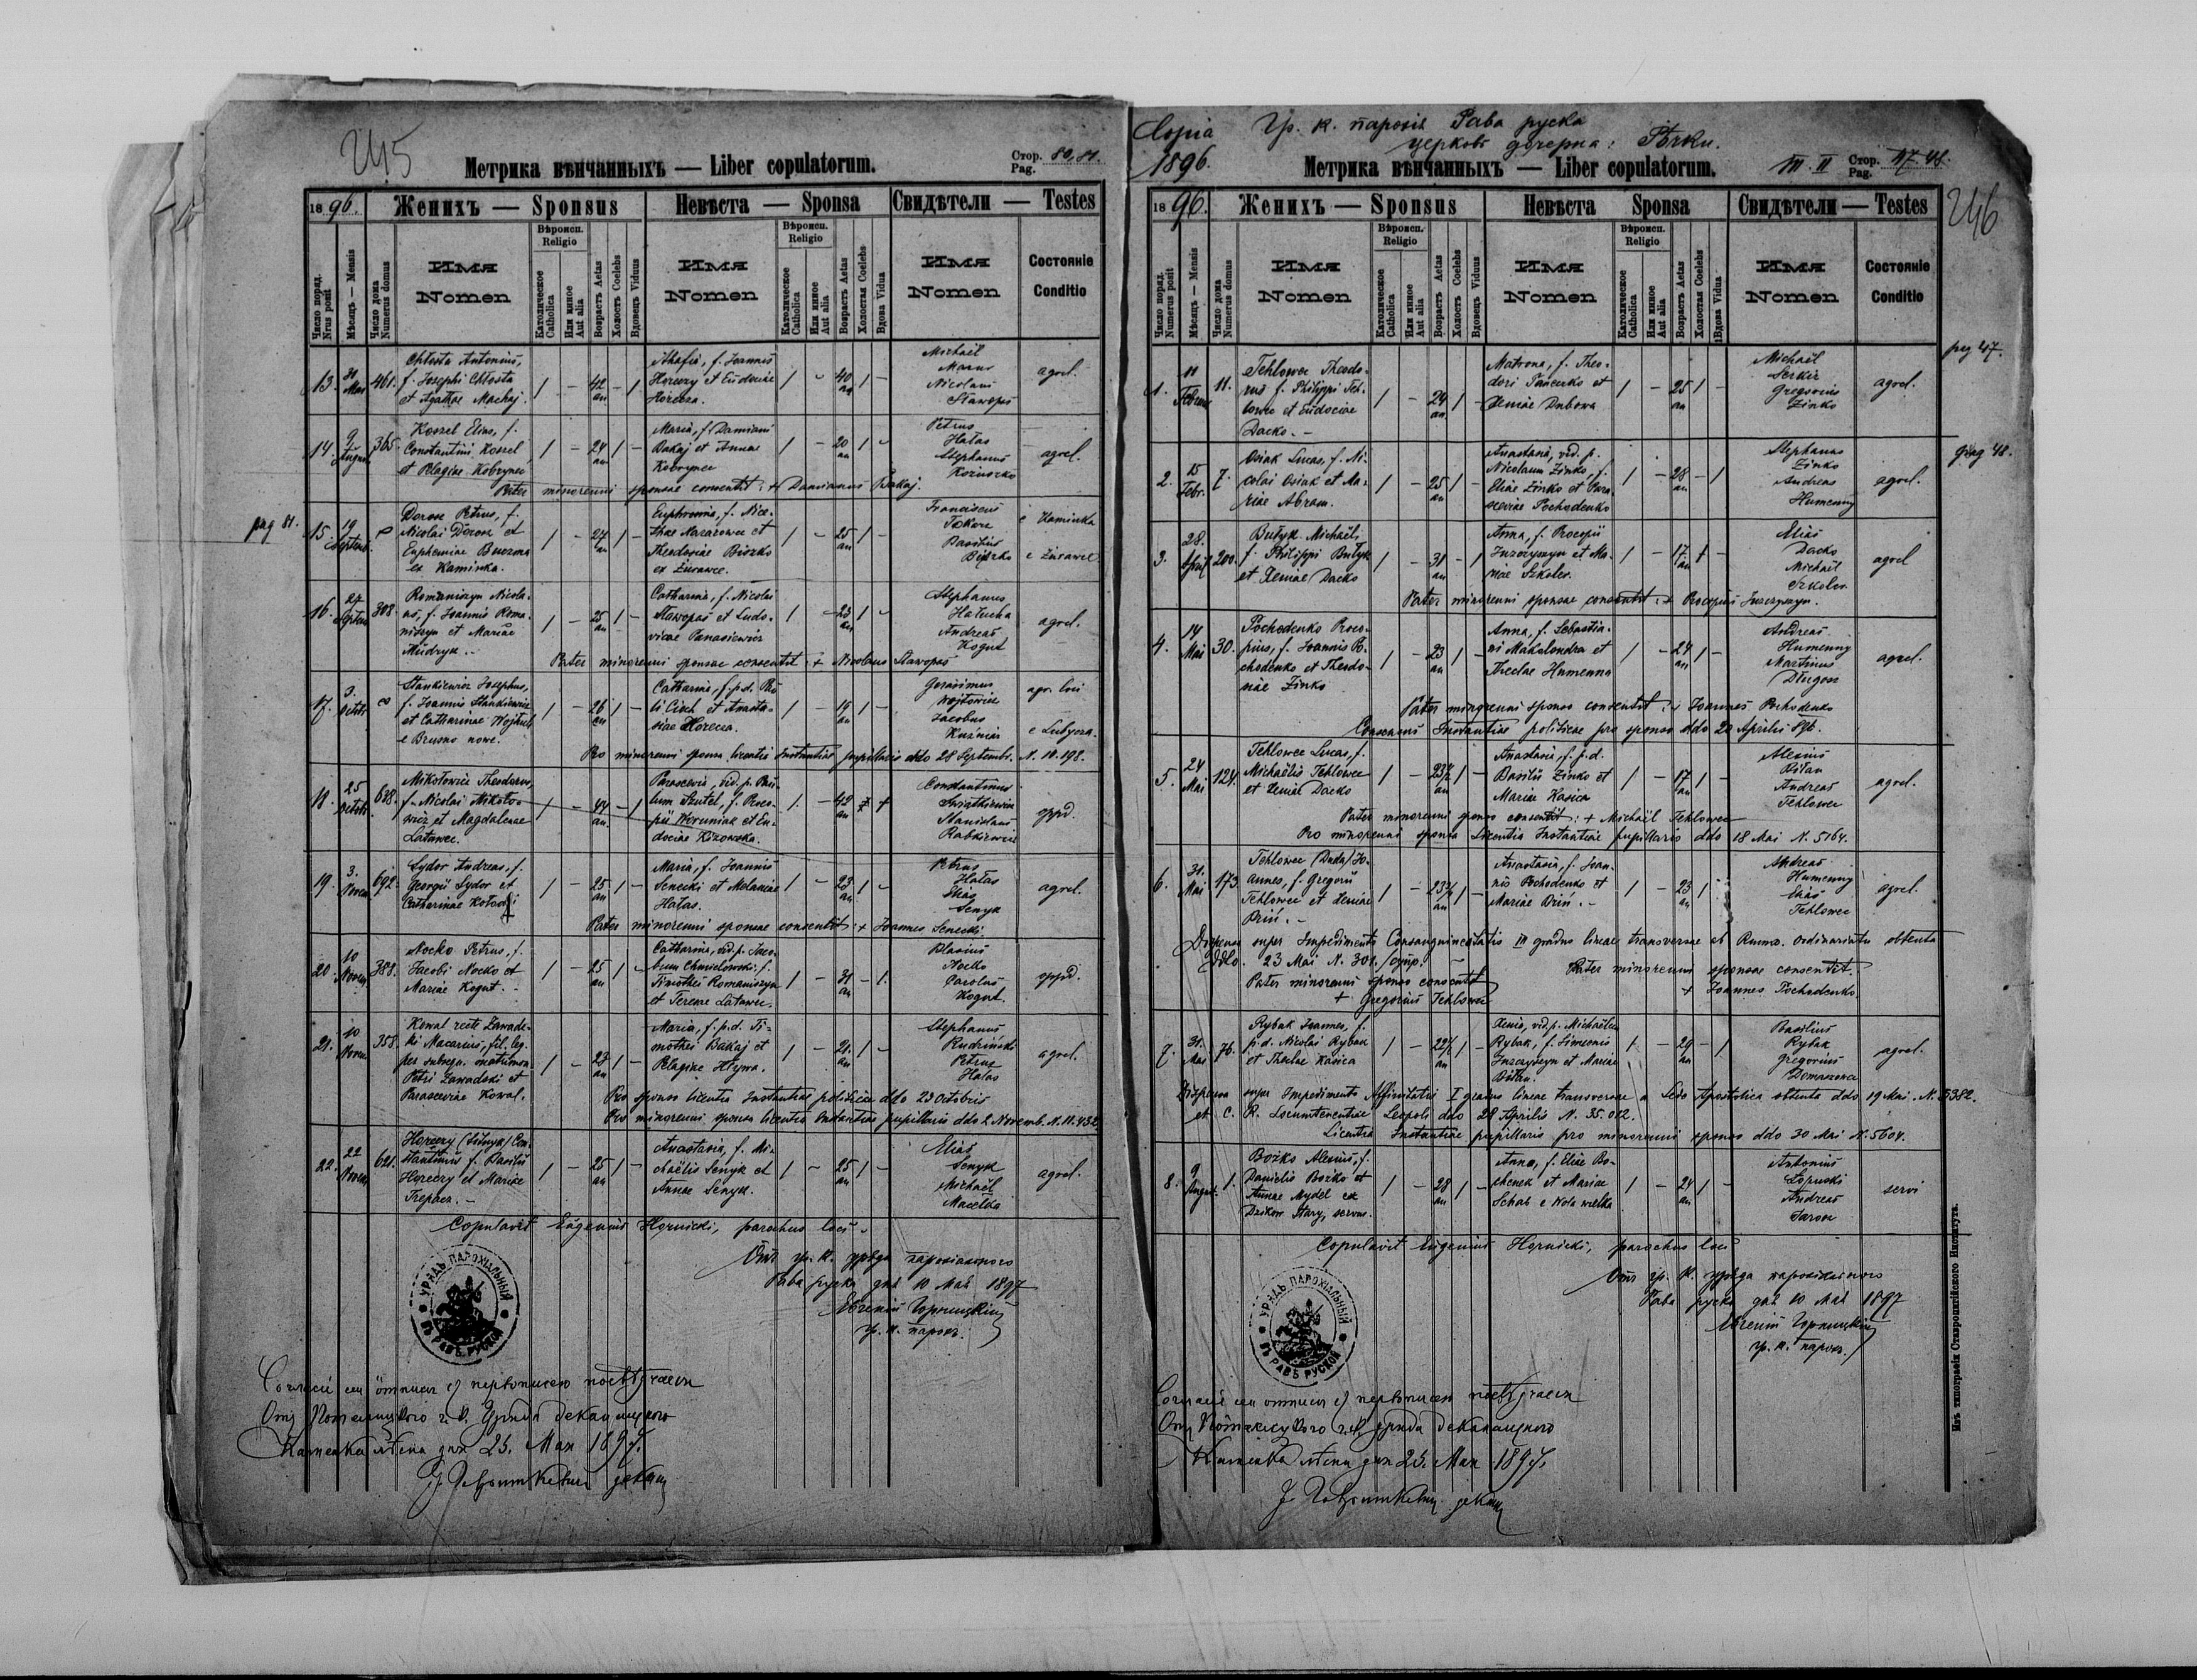 245
Метрика вѣнчанныхъ — Liber copulatorum.
Стор. Pag. 80, 81.
18 96.
Женихъ — Sponsus
Невѣста — Sponsa
Свидѣтели — Testes
Число поряд. Nrus posit
Мѣсяцъ — Mensis
Число дома Numerus domus
Имя Nomen
Вѣроисп. Religio
Католическое Catholica
Или инное Aut alia
Возрастъ Aetas
Холостъ Coelebs
Вдовецъ Viduus
Имя Nomen
Вѣроисп. Religio
Католическое Catholica
Или инное Aut alia
Возрастъ Aetas
Холостая Coelebs
Вдова Vidua
Имя Nomen
Состояніе Conditio
13. 31 Mai 461. Chłosta Antonius, f. Josephi Chłosta et Agathae Machaj. 1 - 42 an - 1
f. Joannis Horeczy et Eudociae 1 - 40 an 1 -
Michaël Nicolaus Stawopas agrcl.
14. 9 August 365. Kossel Elias, f. Constantini Kossel et Pelagiae Kobryncc 1 - 24 an 1 -
Maria, f. Damiani Bakaj et Annae Kobryncc 1 - 20 an 1 -
Petrus Hałas Stephanus Koznoszko agrcl.
Pater minorenni sponsae consentit: + Damianus Bakaj.
pag 81.
15. 19 Septemb. Petrus, f. Nicolai et Euphemiae ex Kaminka. 1 - 27 an 1 -
Euphrosina, f. Nicethae Nazarowec et Theodoriae Biszko ex Żurawce. 1 - 25 an 1 -
Franciscus Tokarz e Kaminka
Basilius Biszko e Żurawce
16. 27 Septem 308. Romaniszyn Nicolaus, f. Joannis Romaniszyn et Mariae Mudryk. 1 - 25 an 1 -
Catharina, f. Nicolai Stawopas et Ludovicae Panasiewicz 1 - 23 an 1 -
Stephanus Andreas Kogut agrcl.
Pater minorenni sponsae consentit: + Nicolaus Stawopas
17. 3. Octob. Stankiewicz Josephus, f. Joannis Stankiewicz et Catharinae e Brusno nowe. 1 - 26 an 1 -
Catharina, f. p. d. et Anastasiae Horecza. 1 - 19 an 1 -
Gerasimus Wojtowicz agr. loci
Jacobus Kuźniar e Lubycza.
Pro minorenni sponsa licentia Instantiae pupillaris ddo 28 Septembr. N. 10.198.
18. 25 Octob 628. Mikołowicz Theodorus, f. Nicolai Mikołowicz et Magdalenae Latawec. 1 - 44 an - 1
Parascevia, vid. p. Paulum Szutel, f. Procopii Woruniak et Eudociae Kizowska. 1. - 42 an
Constantinus Stanislaus Rabkiewicz oppd.
19. 3. Novem 692. Sydor Andreas, f. Georgii Sydor et Catharinae Kołodij 1 - 25 an 1 -
Maria, f. Joannis Senecki et Melaniae Hałas. 1 - 23 an 1 -
Petrus Hałas Elias Senyk agrcl.
Pater minorenni sponsae consentit: + Joannes Senecki.
20. 10 Novem 388. Nocko Petrus, f. Jacobi Nocko et Mariae Kogut. 1 - 25 an 1 -
Catharina, vid. p. Jacobum Chmielowski, f. Timothei Romaniszyn et Terenae Latawec. 1 - 31 an - 1.
Blasius Nocko Carolus Kogut. oppd.
21. 10 Novem 358. Kowal recte Zawadzki Macarius, fil. leg. per subsequ. matrimon. Petri Zawadzki et Parasceviae Kowal. 1 - 23 an 1 -
Maria, f. p. d. Timothei Bakaj et Pelagiae Hływa. 1 - 21. an 1 -
Stephanus Rudziński Petrus Hałas agrcl.
Pro sponso licentia Instantiae politicae ddo 23 Octobris
Pro minorenni sponsa licentia Instantiae pupillaris ddo 2 Novemb. N. 11.432
22. 22 Novem 621. Horeczy Constantinus f. Basilii Horeczy et Mariae 1 - 25 an 1 -
Anastasia, f. Michaëlis Senyk et Annae Senyk. 1 - 25 an 1 -
Elias Senyk Michaël agrcl.
Copulavit Eugenius Hornicki, parochus loci.
Отъ гр. к. уряда парохіяльного
Рава руска дня 10 Мая 1897
Евгеній Горницкій
гр. к. парох.
УРЯДЪ ПАРОХІАЛЬНЫЙ ВЪ РАВѢ РУСКОЙ
дня 25. Мая 1897.
Copia Гр. к. парохія Рава руска
1896. церковь дочерна:
246
Метрика вѣнчанныхъ — Liber copulatorum.
III. II Стор. Pag. 47. 48.
18 96.
Женихъ — Sponsus
Невѣста Sponsa
Свидѣтели — Testes
Число поряд. Numerus posit
Мѣсяцъ — Mensis
Число дома Numerus domus
Имя Nomen
Вѣроисп. Religio
Католическое Catholica
Или инное Aut alia
Возрастъ Aetas
Холостъ Coelebs
Вдовецъ Viduus
Имя Nomen
Вѣроисп. Religio
Католическое Catholica
Или инное Aut alia
Возрастъ Aetas
Холостая Coelebs
Вдова Vidua
Имя Nomen
Состояніе Conditio
pag 47.
1. 11 Februar 11. Tehlowec Theodorus f. Philippi Tehlowec et Eudociae Dacko. - 1 - 24 an 1 -
Matrona, f. Theodori Panczko et Xeniae Dubowa 1 - 25 an 1 -
Michaël Serkiz Gregorius Zinko agrcl.
pag 48.
2. 15 Febr. 7. Osiak Lucas, f. Nicolai Osiak et Mariae Abram. 1 - 25 an 1 -
Anastasia, vid. p. Nicolaum Zinko, f. Eliae Zinko et Parasceviae Pochodenko 1 - 28 an - 1
Stephanus Zinko Andreas Humenny agrcl.
3. 28. April 200. Butyk Michaël, f. Philippi Butyk et Xeniae Dacko 1 - 31 an - 1
Anna, f. Procopii Juzczyszyn et Mariae Szkoler. 1 - 17. an 1 -
Elias Dacko Michaël Szkoler agrcl
Pater minorenni sponsae consentit: + Procopius Juzczyszyn.
4. 14 Mai 30. Pochodenko Procopius, f. Joannis Pochodenko et Theodosiae Zinko 1 - 23 an 1 -
Anna, f. Sebastiani Makolondra et Theclae Humenna 1 - 24 an 1 -
Andreas Humenny Martinus Długosz agrcl.
Pater minorenni sponso consentit: + Joannes Pochodenko
Consensus Instantiae politicae pro sponso ddo 20 Aprilis 896.
5. 24 Mai 124. Tehlowec Lucas, f. Michaëlis Tehlowec et Xeniae Dacko 1 - an 1 -
Anastasia, f. p. d. Basilii Zinko et Mariae Kasica 1 - 17 an 1 -
Alexius Biłan Andreas Tehlowec agrcl.
Pater minorenni sponso consentit: + Michaël Tehlowec
Pro minorenni sponsa Licentia Instantiae pupillaris ddo 18 Mai N. 5164.
6. 31. Mai 173. Tehlowec (Duda) Joannes, f. Gregorii Tehlowec et Xeniae Driń. - 1 - an 1 -
Anastasia, f. Joannis Pochodenko et Mariae Driń. - 1 - 23 an 1
Andreas Humenny Elias Tehlowec agrcl.
Dispensa super Impedimento Consanguineitatis III gradus lineae transversae ab Rmmo. Ordinariatu obtenta
ddo. 23 Mai N. 301.
Pater minorenni sponso consentit + Gregorius Tehlowec
Pater minorenni sponsae consentit. + Joannes Pochodenko
7. 31. Mai 76. Rybak Joannes, f. p. d. Nicolai Rybak et Theclae Kasica 1 - an 1 -
Xenia, vid. p. Michaëlem Rybak, f. Simeonis Juzczyszyn et Mariae Biłan. 1. - 29 an - 1
Basilius Rybak Gregorius agrcl.
Dispensa super Impedimento Affinitatis I gradus lineae transversae a Sede Apostolica obtenta ddo 19 Mai. N. 3382.
et C. R. Locumtenentiae Leopoli ddo 28 Aprilis N. 35.012.
Licentia Instantiae pupillaris pro minorenni sponso ddo 30 Mai N. 5604.
8. 9 August. 1. Bożko Alexius, f. Danielis Bożko et Annae Mydel ex Dzikow Stary, servus. 1 - 28 an 1 -
Anna, f. Eliae Bochenek et Mariae Schab e Wola wielka 1 - 24 an 1 -
Antonius Łopuski Andreas Jarosz servi
Copulavit Eugenius Hornicki, parochus loci
Отъ гр. к. уряда парохіяльного
Рава руска дня 10 Мая 1897
Евгеній Горницкій
гр. к. парох.
УРЯДЪ ПАРОХІАЛЬНЫЙ ВЪ РАВѢ РУСКОЙ
дня 25. Мая 1897.
Изъ типографіи Ставропигійского Института.